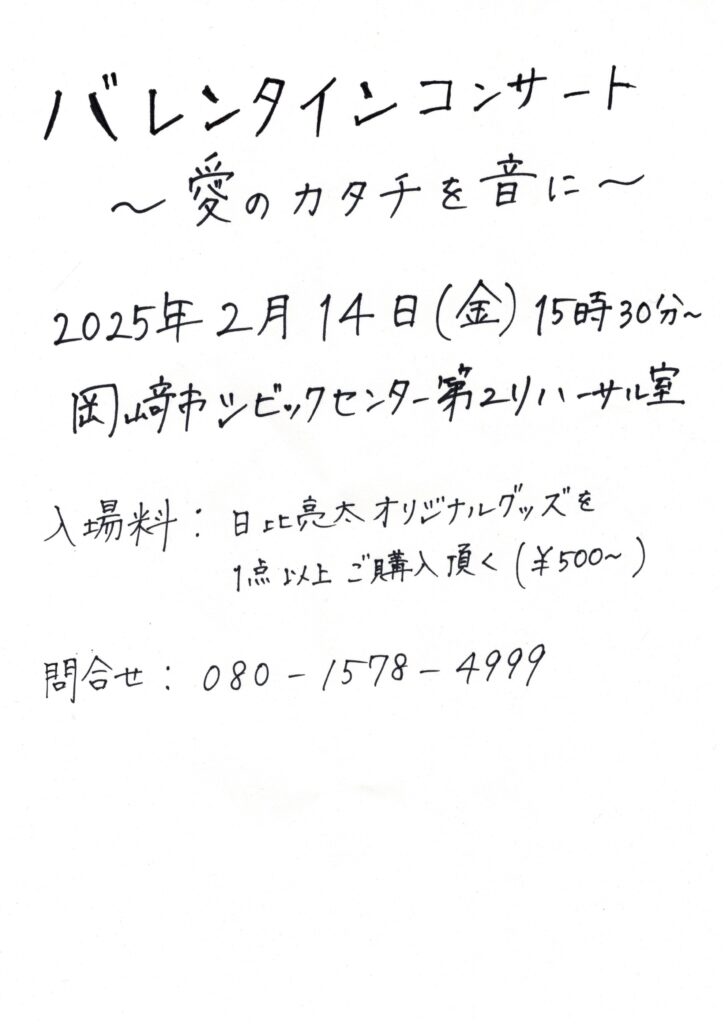 バレンタインコンサート
〜愛のカタチを音に〜
2025年2月14日(金)15時30分~
岡崎市シビックセンター第2リハーサル室
入場料：日比亮太オリジナルグッズを
1点以上ご購入頂く(¥500~)
問合せ：080-1578-4999